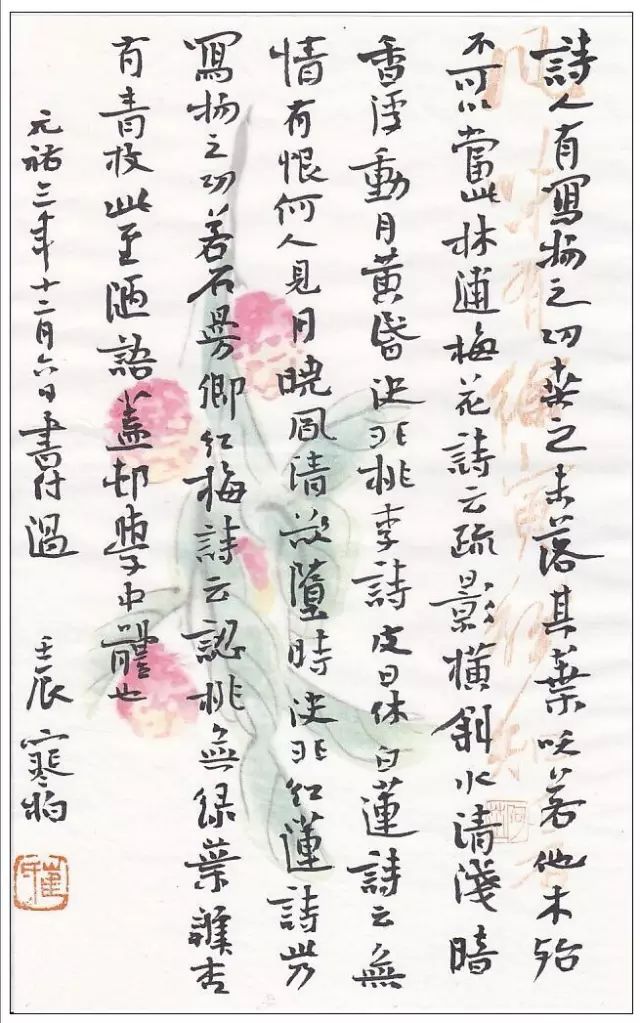 詩人有寫物之功桑之未落其葉沃若他木殆
不可以當此林逋梅花詩云疏影橫斜水清淺暗
香浮動月黃昏決非桃李詩皮日休白蓮詩云無
情有恨何人見月曉風清欲墮時決非紅蓮詩此乃
寫物之功若石曼卿紅梅詩云認桃無綠葉辨杏
有青枝此至陋語蓋邨學中體也
元祐三年十二月六日書付過 壬辰 寒柏